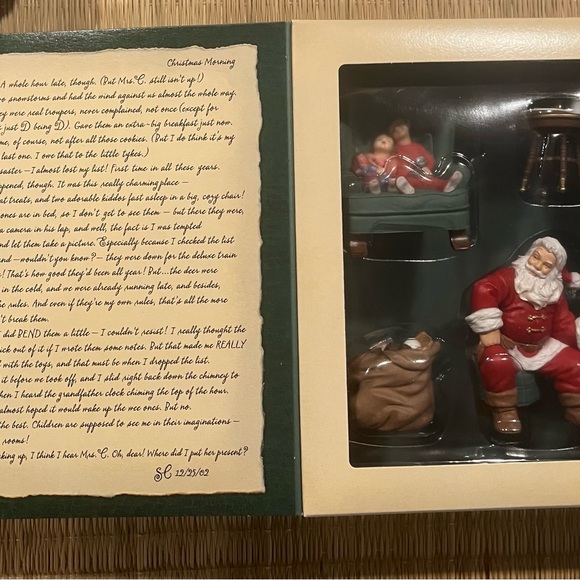 Christmas Morning
A whole hour late, though. (But Mrs. C. still isn't up!)
o snowstorms and had the wind against us almost the whole way.
ey were real troupers, never complained, not once (except for
t just D being D). Gave them an extra-big breakfast just now.
me, of course, not after all those cookies. (But I do think it's my
last one. I owe that to the little tykes.)
saster – I almost lost my list! First time in all these years.
ppened, though. It was this really charming place –
at treats, and two adorable kiddos fast asleep in a big, cozy chair!
ones are in bed, so I don't get to see them – but there they were,
a camera in his lap, and well, the fact is I was tempted
nd let them take a picture. Especially because I checked the list
and – wouldn't you know? – they were down for the deluxe train
! That's how good they'd been all year! But... the deer were
in the cold, and we were already running late, and besides,
he rules. And even if they're my own rules, that's all the more
't break them.
I did BEND them a little – I couldn't resist! I really thought the
ick out of it if I wrote them some notes. But that made me REALLY
d with the toys, and that must be when I dropped the list.
it before we took off, and I slid right back down the chimney to
hen I heard the grandfather clock chiming the top of the hour.
almost hoped it would wake up the wee ones. But no.
the best. Children are supposed to see me in their imaginations –
rooms!
king up, I think I hear Mrs. C. Oh, dear! Where did I put her present?
SC 12/25/02